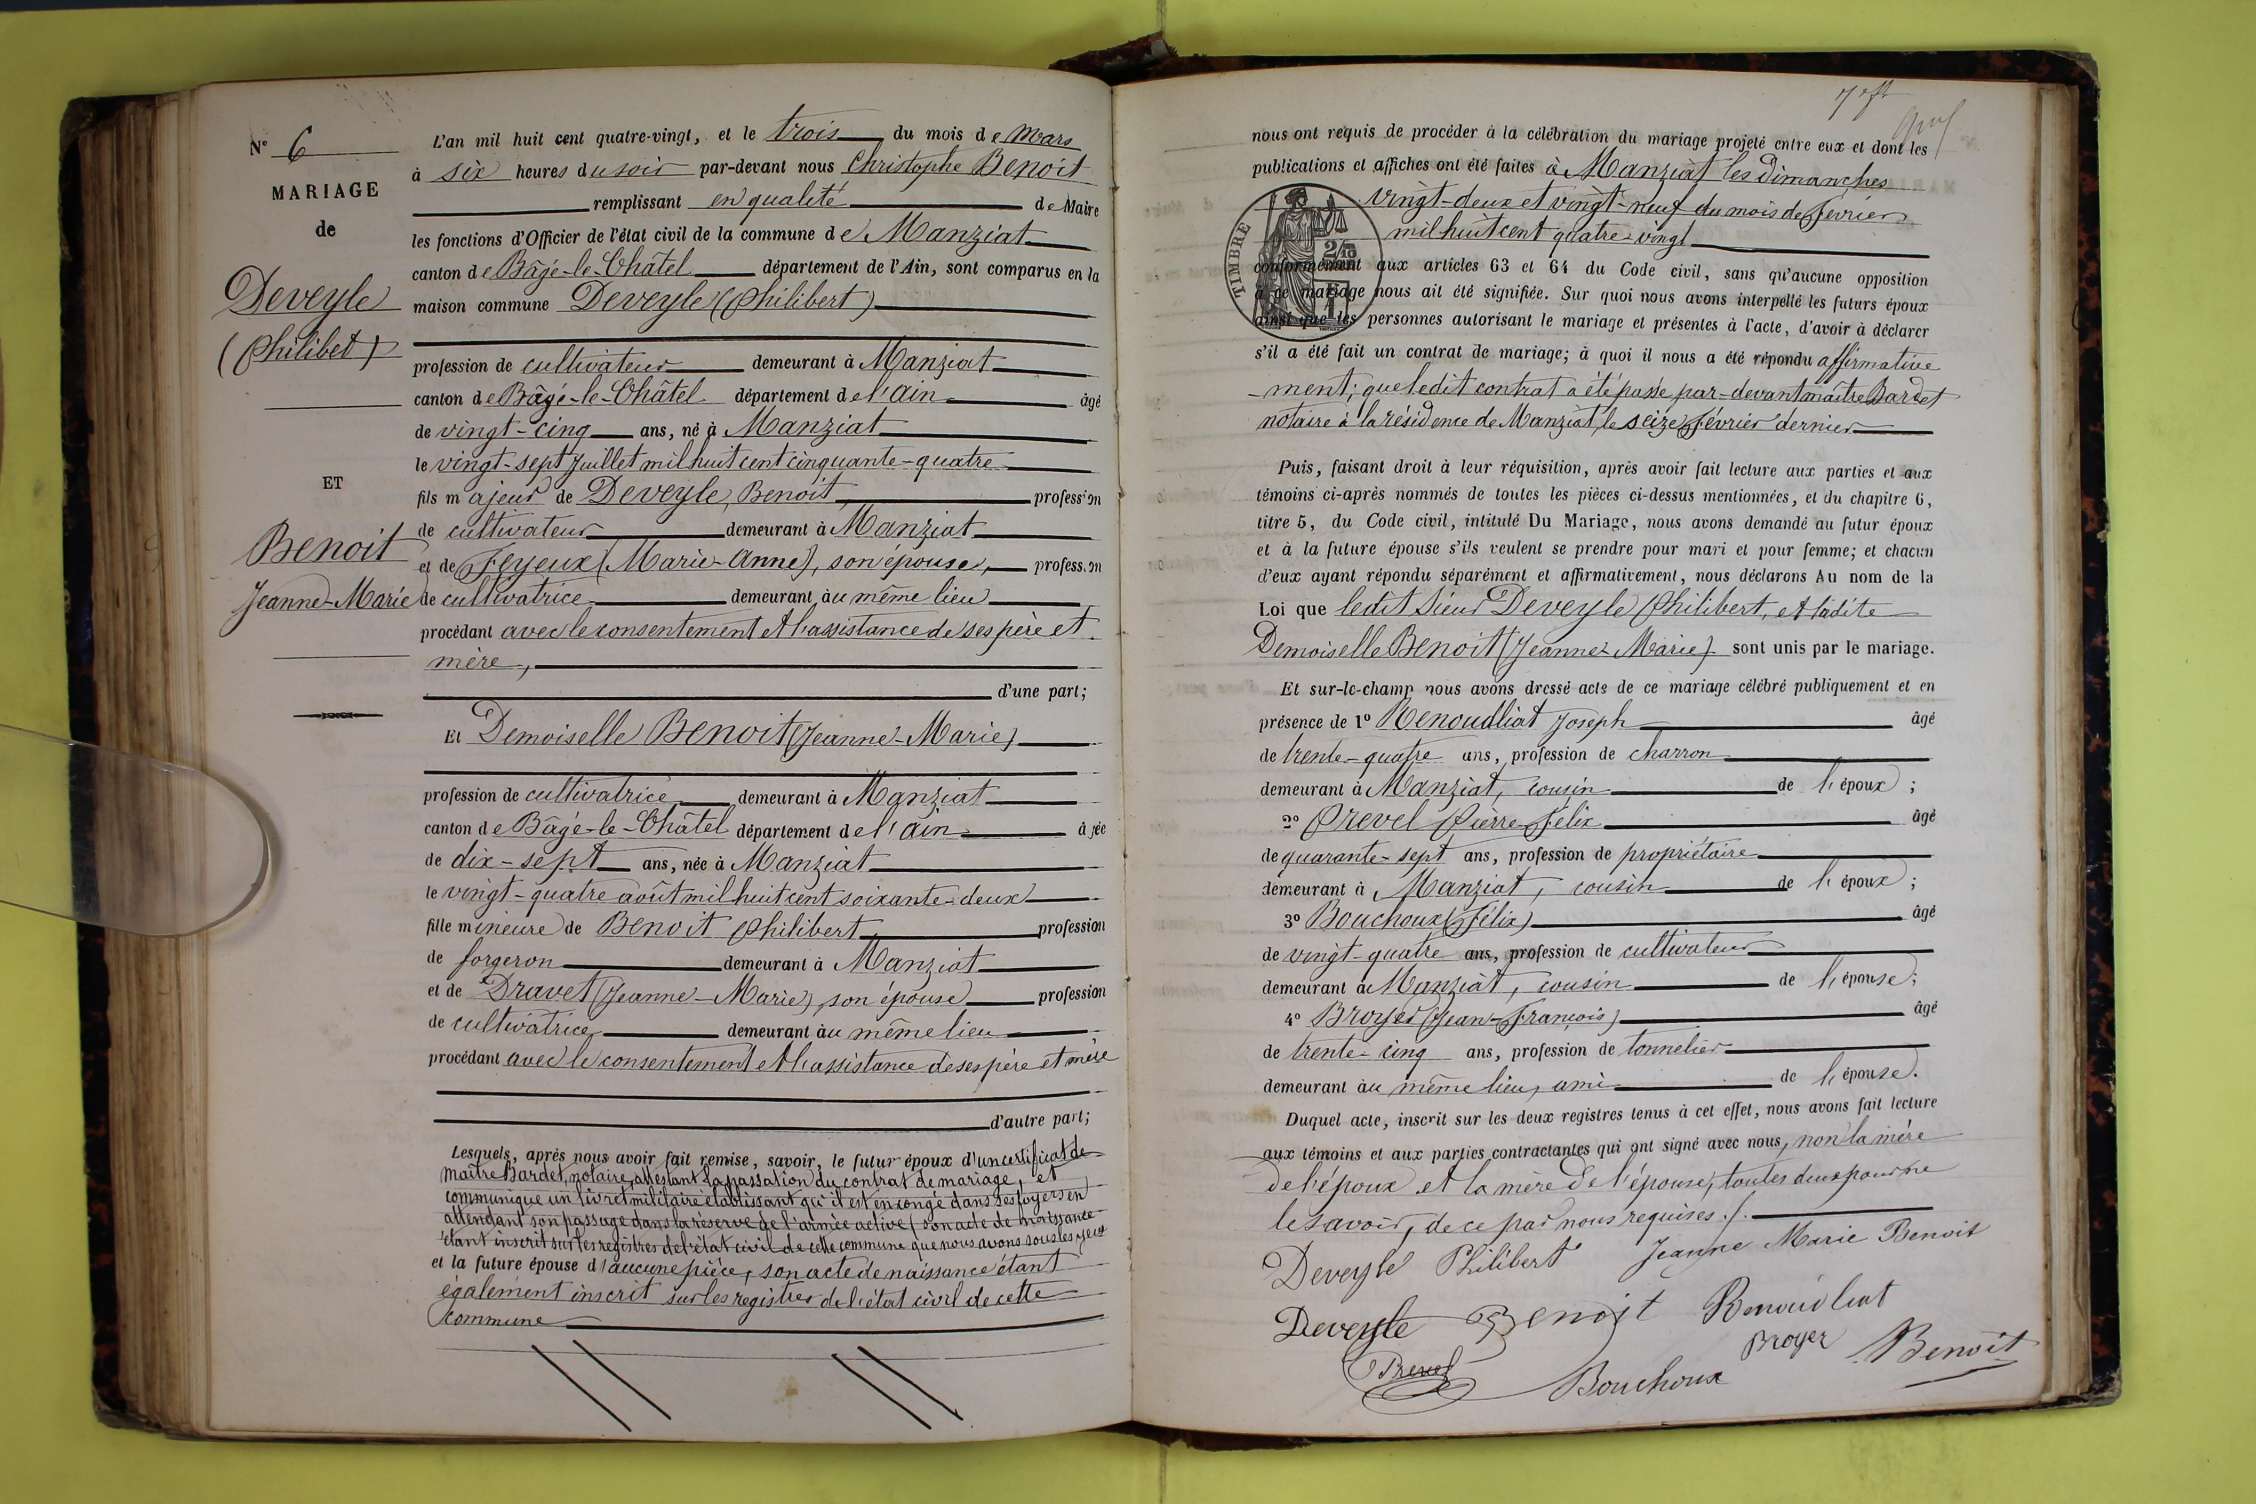 N° 6
MARIAGE
de
Deveyle
(Philibet)
ET
Benoit
Jeanne-Marie
L'an mil huit cent quatre-vingt, et le trois du mois de Mars
à six heures du soir par-devant nous Christophe Benoit
remplissant en qualité de Maire
les fonctions d'Officier de l'état civil de la commune de Manziat
canton de Bâgé-le-Châtel département de l'Ain, sont comparus en la
maison commune Deveyle (Philibert)
profession de cultivateur demeurant à Manziat
canton de Bâgé-le-Châtel département de l'Ain âgé
de vingt-cinq ans, né à Manziat
le vingt-sept Juillet mil huit cent cinquante-quatre
fils majeur de Deveyle, Benoit, profession
de cultivateur demeurant à Manziat
et de Feyeux (Marie-Anne), son épouse, profession
de cultivatrice demeurant au même lieu
procédant avec le consentement et l'assistance de ses père et
mère,
d'une part;
Et Demoiselle Benoit (Jeanne-Marie)
profession de cultivatrice demeurant à Manziat
canton de Bâgé-le-Châtel département de l'Ain âgée
de dix-sept ans, née à Manziat
le vingt-quatre août mil huit cent soixante-deux
fille mineure de Benoit Philibert, profession
de forgeron demeurant à Manziat
et de Dravet (Jeanne-Marie), son épouse profession
de cultivatrice demeurant au même lieu
procédant avec le consentement et l'assistance de ses père et mère
d'autre part;
Lesquels, après nous avoir fait remise, savoir, le futur époux d'un certificat de
maître Bardet, notaire, attestant la passation du contrat de mariage, et
communiqué un livret militaire établissant qu'il est en congé dans ses foyers en
attendant son passage dans la réserve de l'armée active (son acte de naissance
étant inscrit sur les registres de l'état civil de cette commune que nous avons sous les yeux
et la future épouse d'aucune pièce, son acte de naissance étant
également inscrit sur les registres de l'état civil de cette
commune
nous ont requis de procéder à la célébration du mariage projeté entre eux et dont les
publications et affiches ont été faites à Manziat les dimanches
vingt-deux et vingt-neuf du mois de Février
mil huit cent quatre-vingt
TIMBRE
conformément aux articles 63 et 64 du Code civil, sans qu'aucune opposition
à ce mariage nous ait été signifiée. Sur quoi nous avons interpellé les futurs époux
ainsi que les personnes autorisant le mariage et présentes à l'acte, d'avoir à déclarer
s'il a été fait un contrat de mariage; à quoi il nous a été répondu affirmative
-ment; que ledit contrat a été passé par-devant maître Bardet
notaire à la résidence de Manziat, le seize Février dernier
Puis, faisant droit à leur réquisition, après avoir fait lecture aux parties et aux
témoins ci-après nommés de toutes les pièces ci-dessus mentionnées, et du chapitre 6,
titre 5, du Code civil, intitulé Du Mariage, nous avons demandé au futur époux
et à la future épouse s'ils veulent se prendre pour mari et pour femme; et chacun
d'eux ayant répondu séparément et affirmativement, nous déclarons Au nom de la
Loi que ledit Sieur Deveyle Philibert, et ladite
Demoiselle Benoit (Jeanne-Marie) sont unis par le mariage.
Et sur-le-champ nous avons dressé acte de ce mariage célébré publiquement et en
présence de 1° Renoudliat Joseph âgé
de trente-quatre ans, profession de charron
demeurant à Manziat, cousin de l'époux;
2° Prevel Pierre-Félix âgé
de quarante-sept ans, profession de propriétaire
demeurant à Manziat, cousin de l'époux;
3° Bouchoux (Félix) âgé
de vingt-quatre ans, profession de cultivateur
demeurant à Manziat, cousin de l'épouse;
4° Broyer (Jean-François) âgé
de trente-cinq ans, profession de tonnelier
demeurant au même lieu, ami de l'épouse.
Duquel acte, inscrit sur les deux registres tenus à cet effet, nous avons fait lecture
aux témoins et aux parties contractantes qui ont signé avec nous, non la mère
de l'époux et la mère de l'épouse, toutes deux pour ne
le savoir, de ce par nous requises ./.
Deveyle Philibert Jeanne Marie Benoit
Deveyle Benoit Renoudliat
Prevel Bouchoux Broyer Benoit